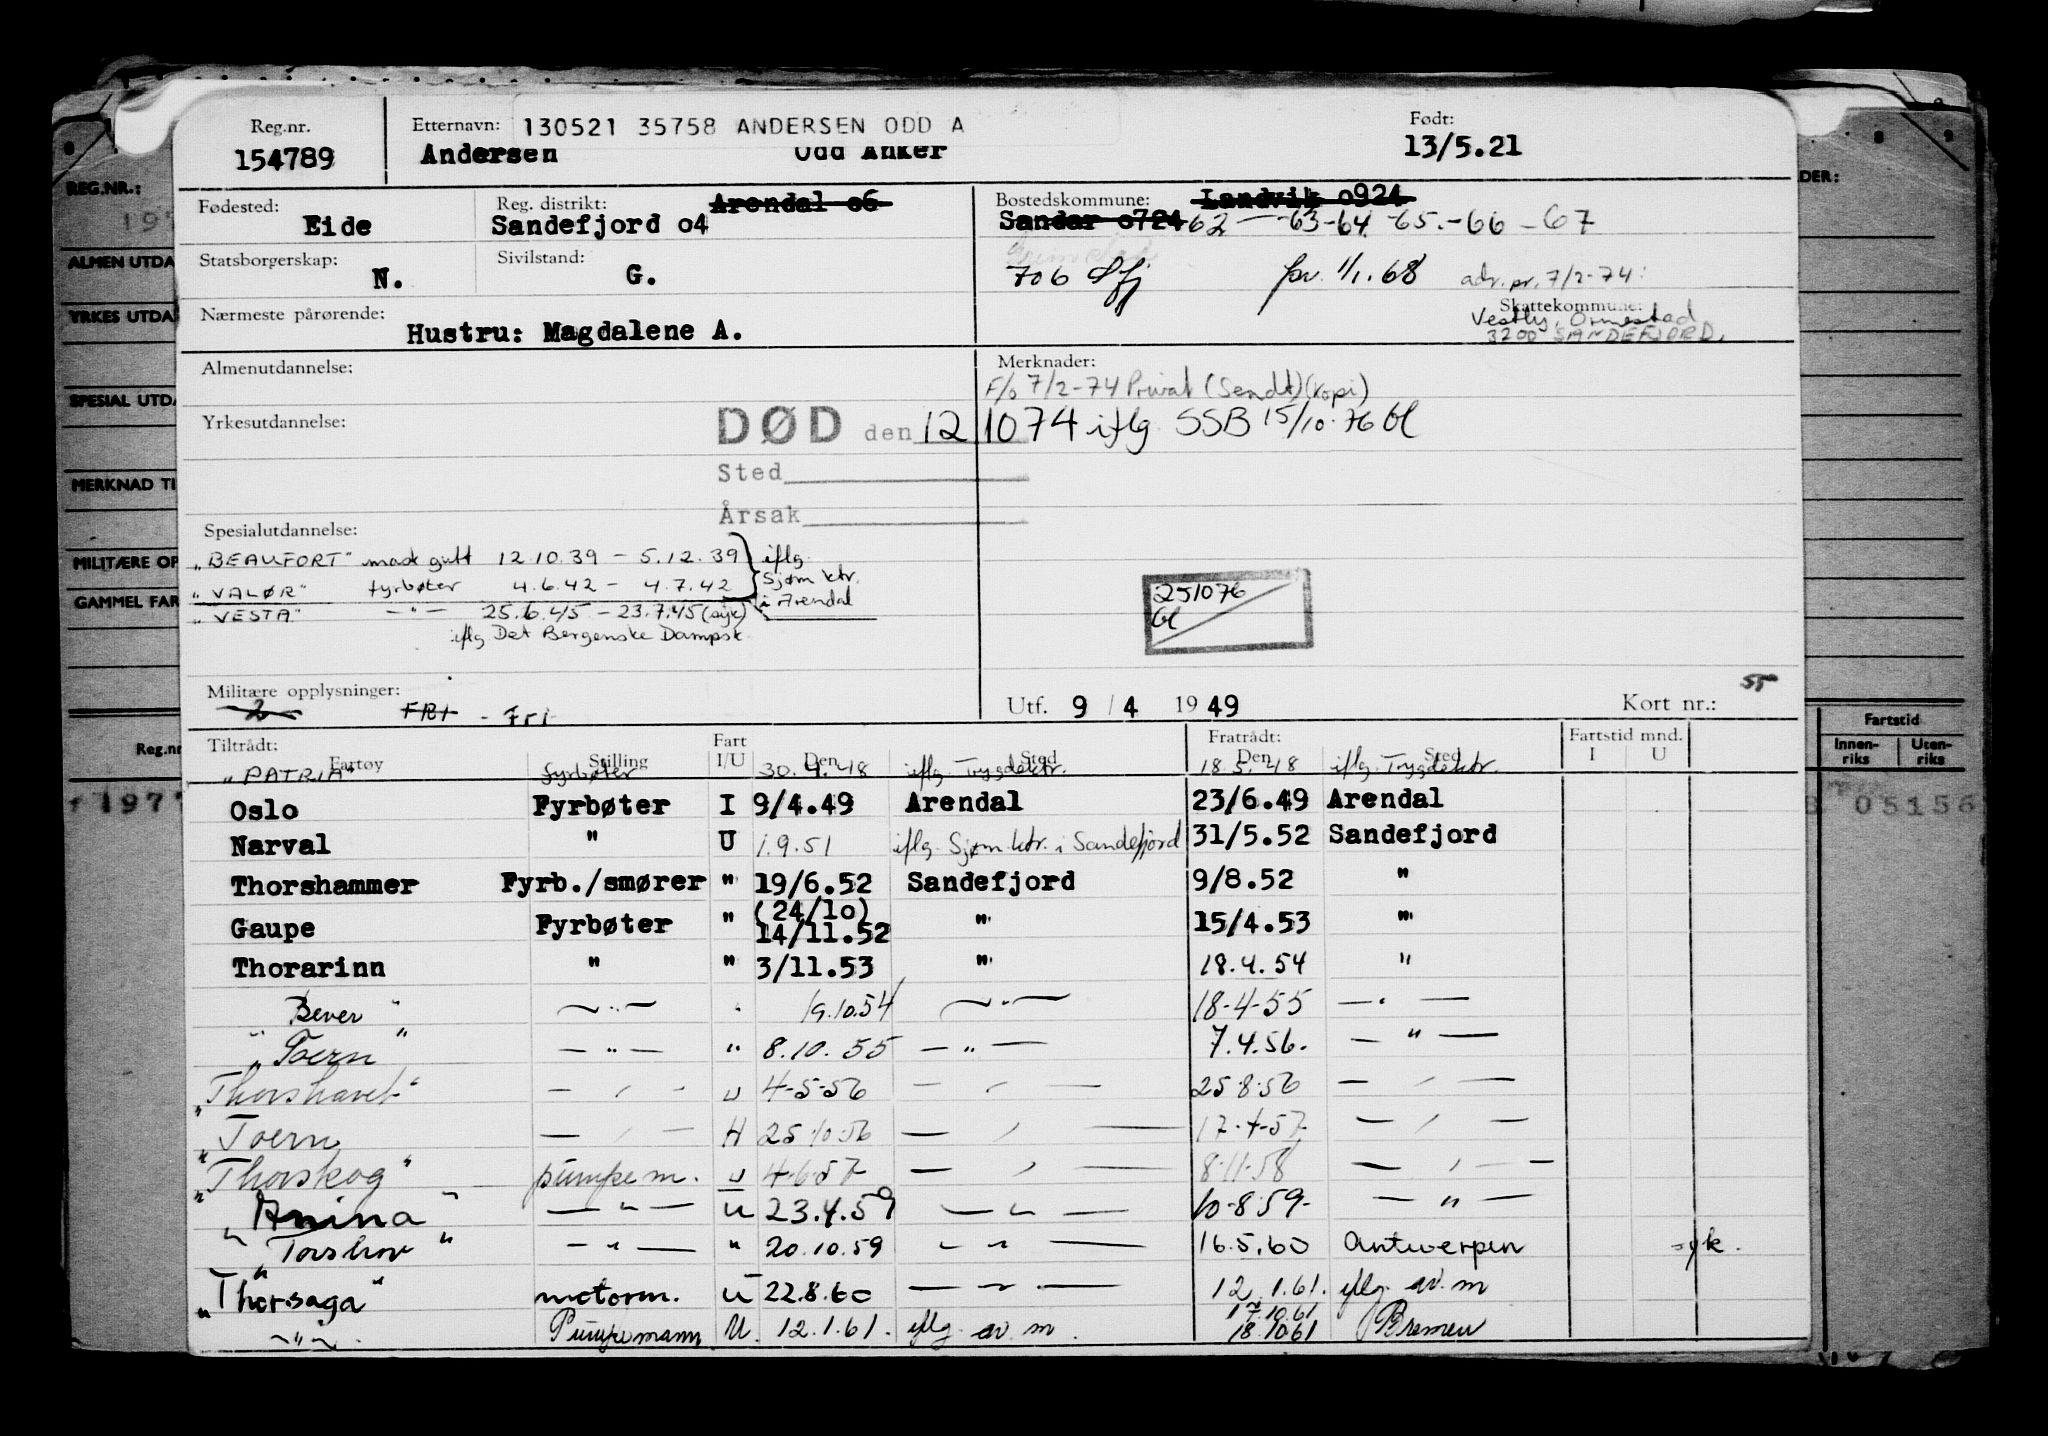 Reg.nr. Etternavn: 130521 35758 ANDERSEN ODD A Født:
154789 Andersen Odd Anker 13/5.21
Fødested: Reg. distrikt: Arendal o6 Bostedskommune: Landvik o924
Eide Sandefjord o4 Sandar o724 62 — -63-64. -65.-66 -67
Statsborgerskap: Sivilstand:
N. G. 706 Sfj pr. 1/1.68 adr. pr. 7/2-74:
Nærmeste pårørende: Skattekommune:
Hustru: Magdalene A. Vestly, Ormestad
3200 SANDEFJORD.
Almenutdannelse: Merknader:
F/o 7/2-74 Privat (Sendt)(kopi)
Yrkesutdannelse: DØD den 12 1074 iflg. SSB 15/10-76
Sted
Årsak
Spesialutdannelse:
"BEAUFORT" mask gutt 12.10.39 - 5.12.39 iflg.
"VALØR" fyrbøter 4.6.42 - 4.7.42 Sjøm ktr.
"VESTA" — " — 25.6.45 - 23.7.45 (syk) i Arendal
iflg Det Bergenske Dampsk.
251076
Militære opplysninger: Utf. 9 / 4 1949 Kort nr.: 55
FRI - Fri
Tiltrådt: Fart Fratrådt: Fartstid mnd.
Fartøy Stilling I/U Den Sted Den Sted I U
"PATRIA" fyrbøter 30.4.48 iflg. Trygdektr. 18.5.48 iflg. Trygdektr.
Oslo Fyrbøter I 9/4.49 Arendal 23/6.49 Arendal
Narval " U 1.9.51 iflg. Sjøm.ktr. i Sandefjord 31/5.52 Sandefjord
Thorshammer Fyrb./smører " 19/6.52 Sandefjord 9/8.52 "
Gaupe Fyrbøter " (24/10) 14/11.52 " 15/4.53 "
Thorarinn " " 3/11.53 " 18.4.54 "
Bever " — " — " 19.10.54 — " — 18-4-55 — " —
"Toern" — " — " 8.10.55 — " — 7.4.56. — " —
"Thorshavet" — " — U 4-5-56 — " — 25-8-56 — " —
"Toern — " — H 25 10 56 — " — 17-4-57 — " —
"Thorskog" pumpem. U 4-6-57 — " — 8-11-58 — " —
"Anina" — " — U 23.4.59 — " — 10-8-59- — " —
"Torshov" — " — " 20.10.59 — " — 16.5.60 Antwerpen syk.
"Thorsaga" motorm. U 22.8.60 — " — 12.1.61. iflg. av. m
— " — Pumpemann U. 12.1.61. iflg. av. m. 17.10.61
18.10.61 Bremen
REG.NR.:
ALMEN UTDA
YRKES UTDA
SPESIAL UTDA
MERKNAD TI
MILITÆRE OP
GAMMEL FAR
Reg.nr
DER:
Fartstid
Innen-riks Uten-riks
05156